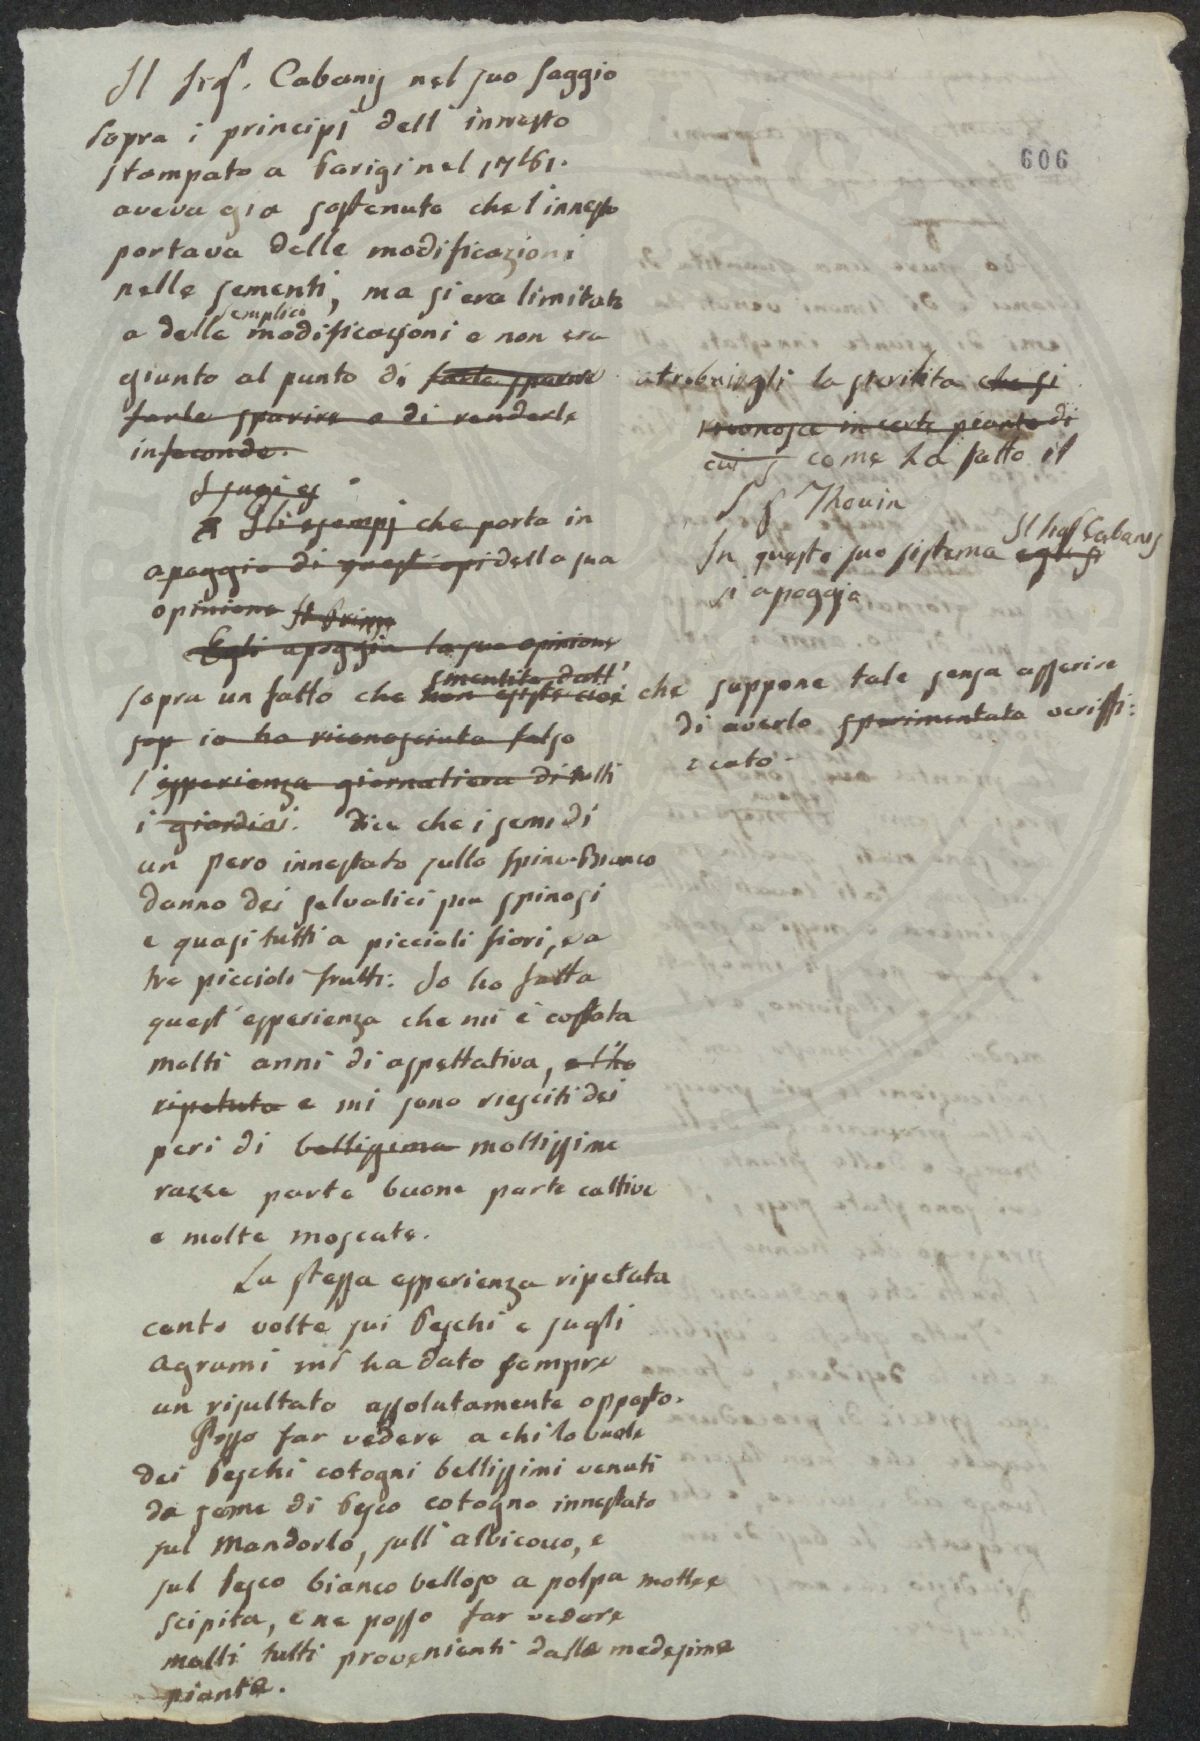 606
Il Sig.r Cabanis nel suo saggio
sopra i principj dell innesto
stampato a Parigi nel 1761.
aveva gia sostenuto che l'innesto
portava delle modificazioni
nelle sementi, ma si era limitato
a delle semplici modificazioni e non era
giunto al punto di farle sparire
farle sparire e di renderle
infeconde.
atribuirgli la sterilita che si
riconosce in certe piante di
cui come ha fatto il
S.r Thouin
I sugi es
Gli esempj che porta in
apoggio di quest opi della sua
opinione
In questo suo sistema egli si Il Sig.r Cabanis
si apoggia
Egli apoggia la sua opinione
sopra un fatto che non esiste cioè smentito dall'
sop io ho riconosciuto falso
l'esperienza giornaliera di tutti
i giardini. Dice che i semi di
che suppone tale senza asserire
di averlo sperimentato veriffi:
cato
un pero innestato sullo Spino-Bianco
danno dei selvatici piu spinosi
e quasi tutti a piccioli fiori, e a
tre piccioli frutti: Io ho fatta
quest'esperienza che mi è costata
molti anni di aspettativa, e l'ho
ripetuta e mi sono riesciti dei
peri di bellissima moltissime
razze parte buone parte cattive
e molte moscate.
La stessa esperienza ripetuta
cento volte sui Peschi e sugli
Agrumi mi ha dato sempre
un risultato assolutamente opposto.
Posso far vedere a chi lo vuole
dei Peschi cotogni bellissimi venuti
da seme di Pesco cotogno innestato
sul Mandorlo, sull'albicocco, e
sul Pesco bianco belloso a polpa molle e
scipita, e ne posso far vedere
molti tutti provenienti dalle medesime
piante.